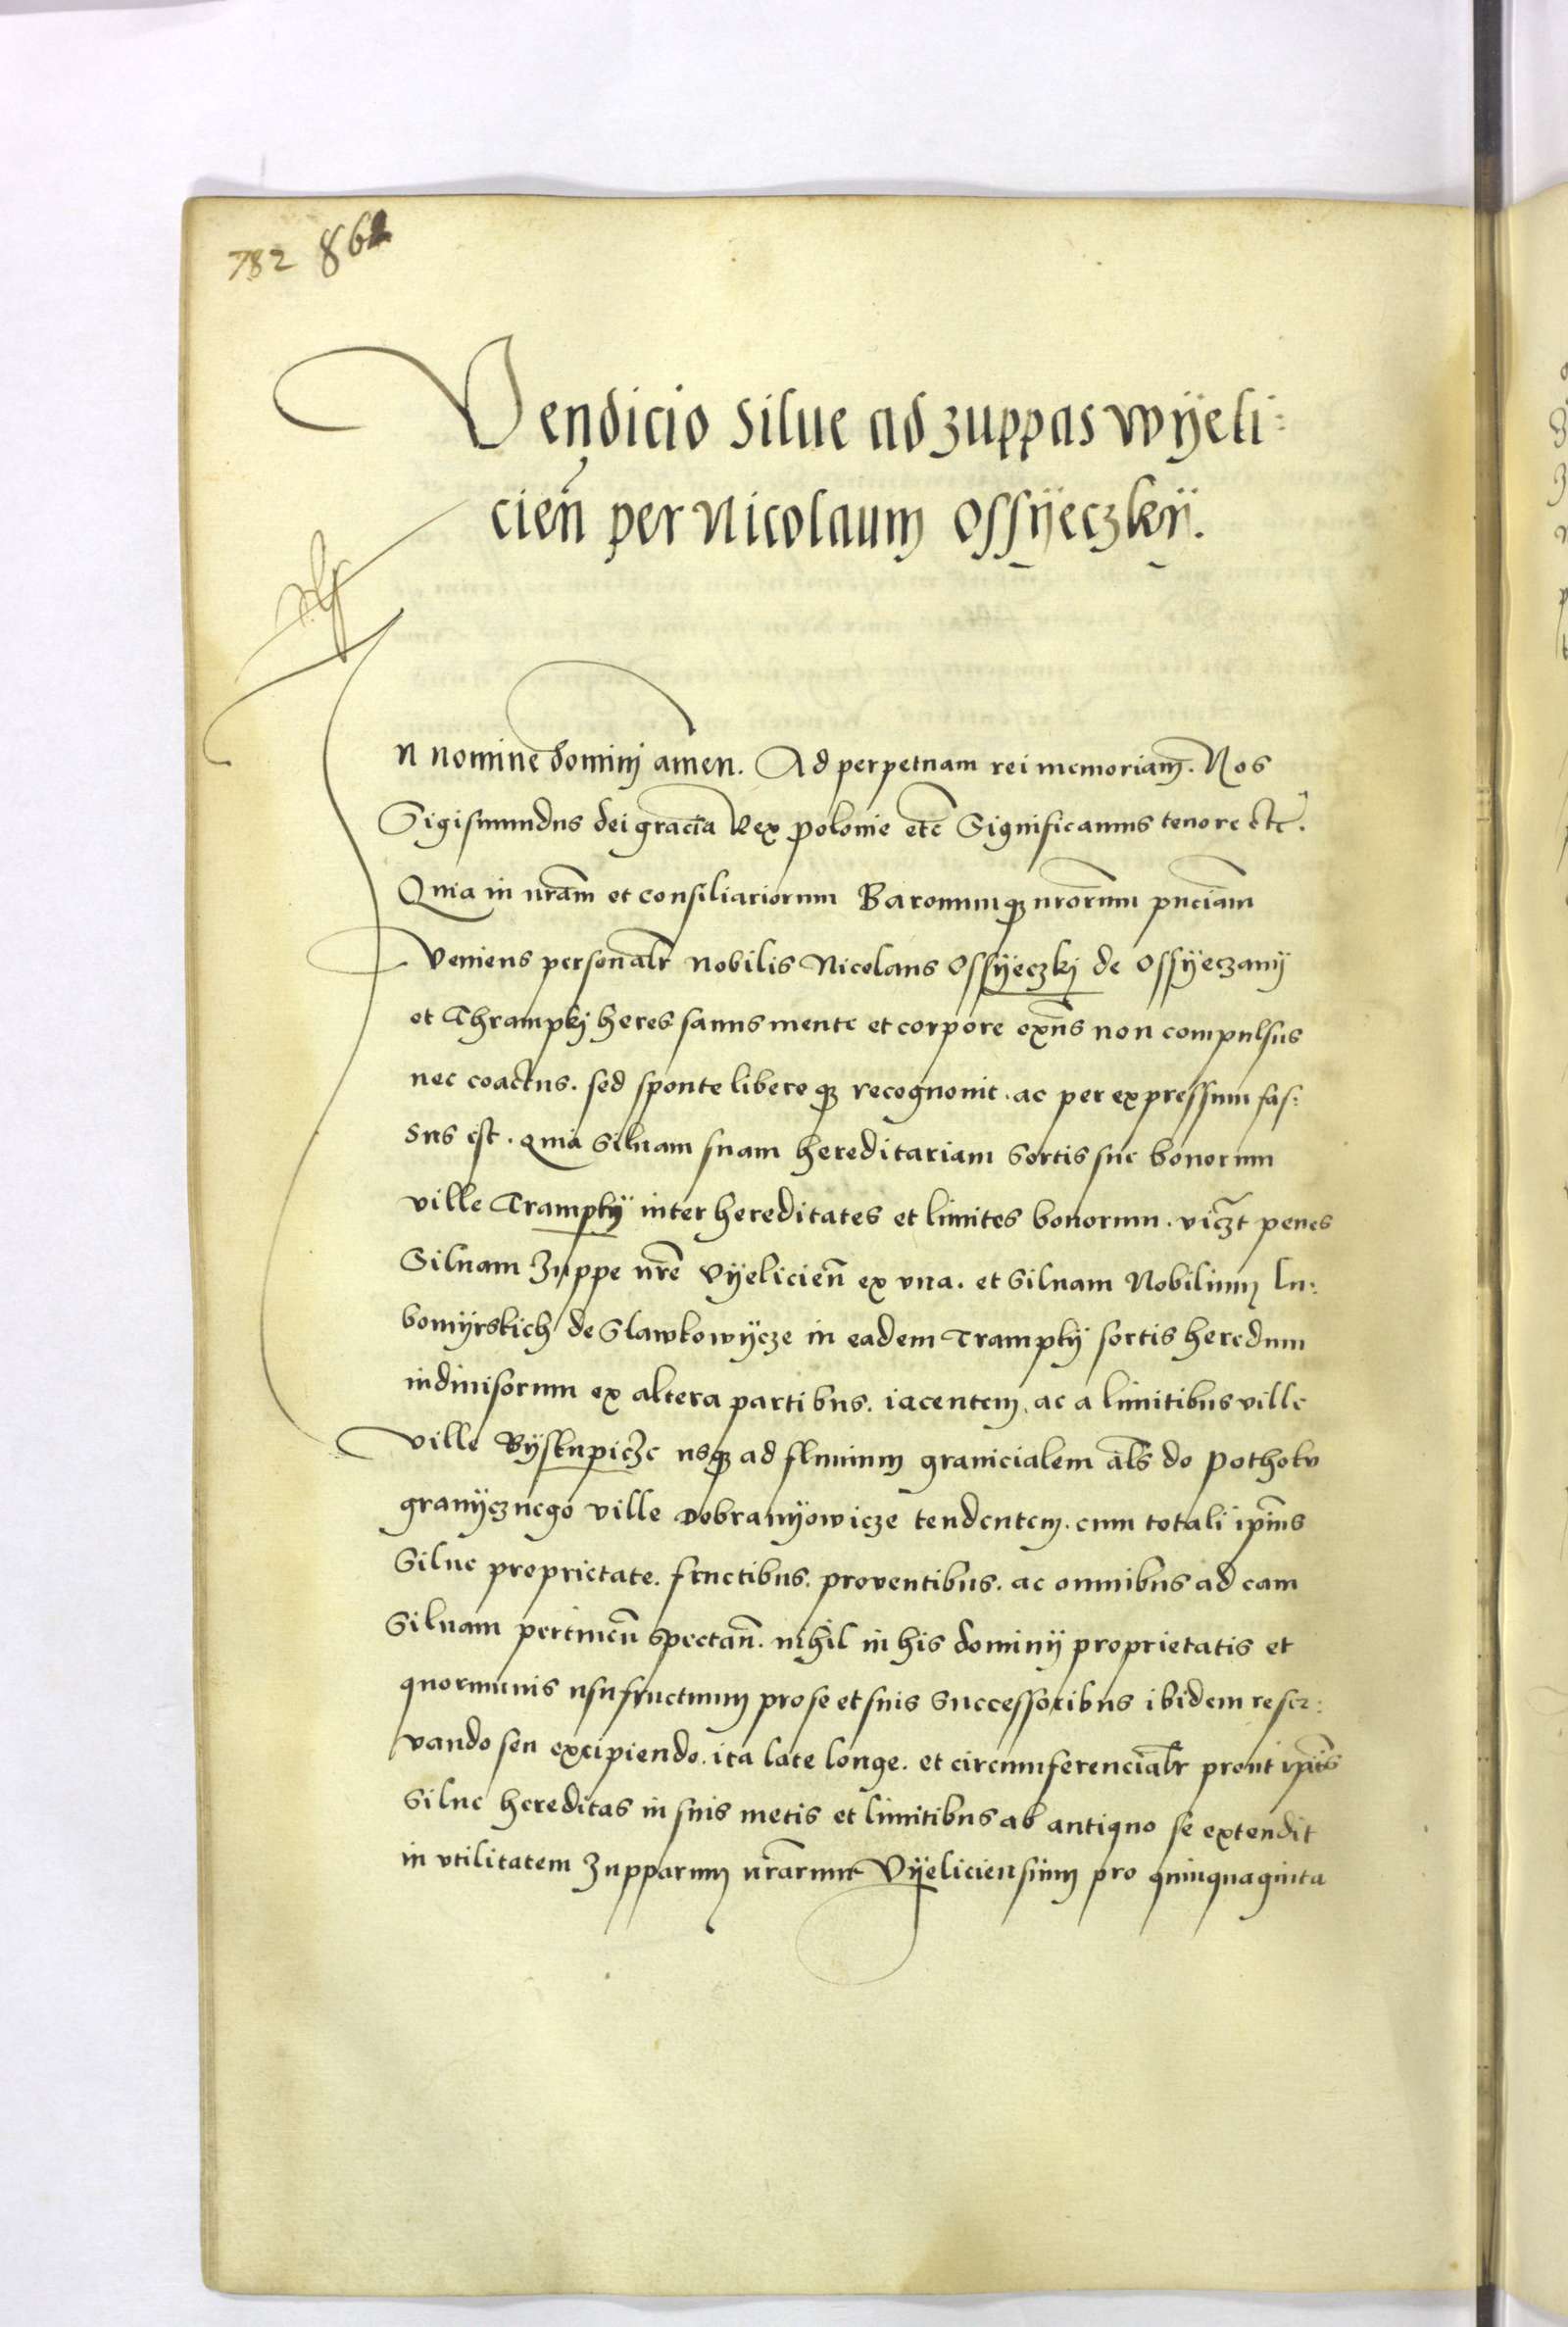 782 862
Vendicio silue ad zuppas wÿeli:
cien̄ per Nicolaum Ossÿeczkÿ.
In nomine dominj amen. Ad perpetuam rei memoriam. Nos
Sigismundus dei gracia Rex polonie etc̄ Significamus tenore etc.
Quia in nr̄am et consiliariorum Baronumqꝫ nrōrum pn̄ciam
Veniens personalr̄ nobilis Nicolaus Ossÿeczkj de Ossÿeczanÿ
et Thrampkj heres sanus mente et corpore exn̄s non compulsus
nec coactus. sed sponte libereqꝫ recognouit. ac per expressum fas:
sus est. quia siluam suam hereditariam sortis sue bonorum
ville Trampkÿ inter hereditates et limites bonorum. vicꝫt penes
Siluam Zuppe nrē Vÿelicien̄ ex vna. et siluam Nobilium lu:
bomÿrskich de Slawkowÿcze in eadem Trampkÿ sortis heredum
indiuisorum ex altera partibus. iacentem. ac a limitibus ville
ville Bÿskupicze usqꝫ ad fluuium granicialem al̄s do pothoku
granÿcznego ville Dobranÿowicze tendentem. cum totali ipīus
Silue proprietate. fructibus. proventibus. ac omnibus ad eam
siluam pertinen̄ spectan̄. nihil in his dominÿ proprietatis et
quorumuis usufructuum pro se et suis successoribus ibidem reser:
vando seu excipiendo. ita late longe. et circumferencialr̄ prout ipīus
silue hereditas in suis metis et limitibus ab antiquo se extendit
in vtilitatem Zupparum nrārum Vÿeliciensium pro quinquaginta